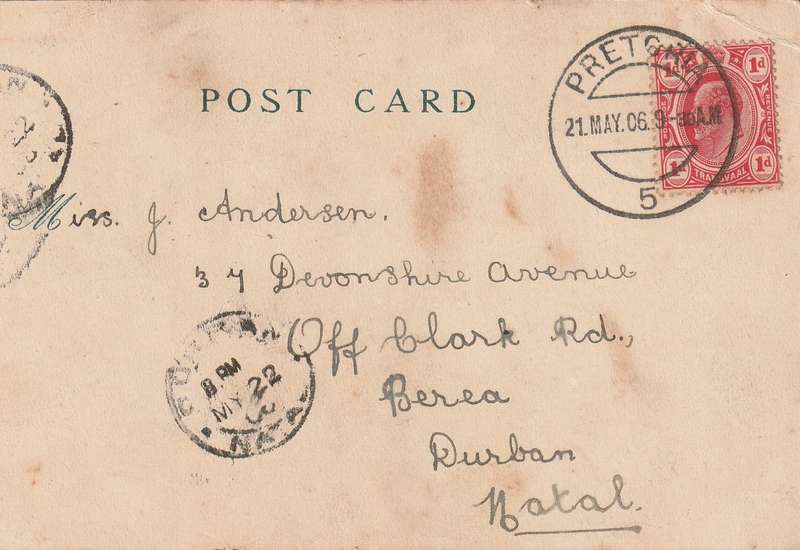 POST CARD
PRETORIA
21. MAY. 06. 9
5
1d 1d
POSTAGE REVENUE
1d 1d
TRANSVAAL
Miss. J. Andersen.
37 Devonshire Avenue
Off Clark Rd.,
Berea
Durban
Natal.
DURBAN
8 PM
MY 22
NATAL
22